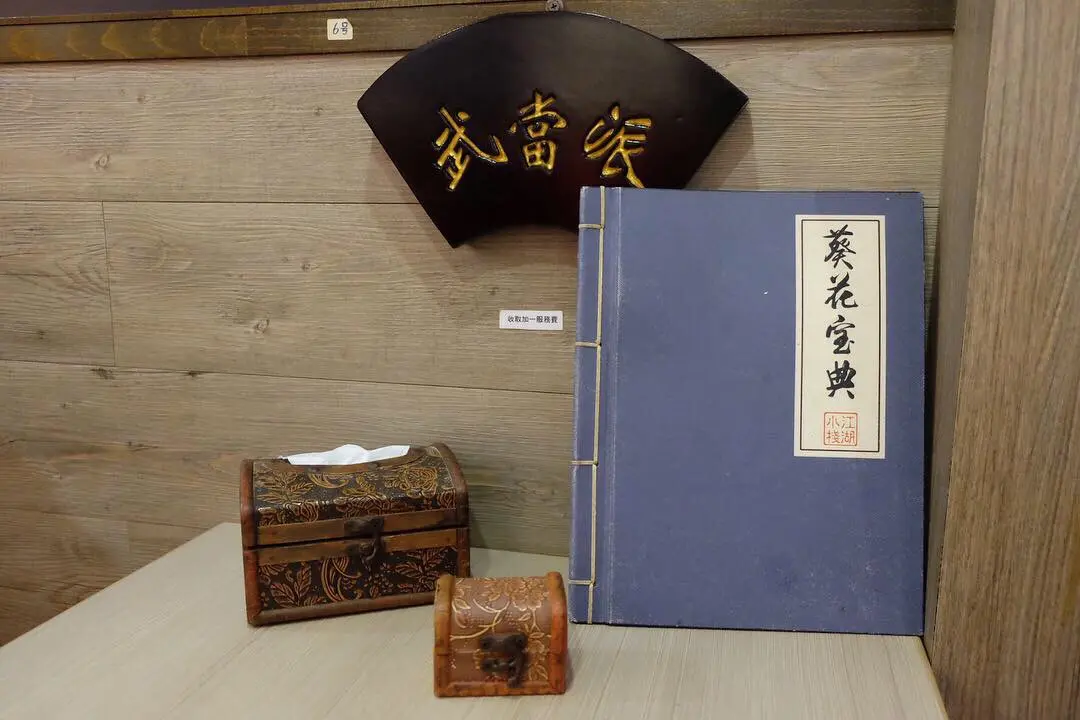 6号
武當派
收取加一服務費
葵花宝典
江湖
小棧